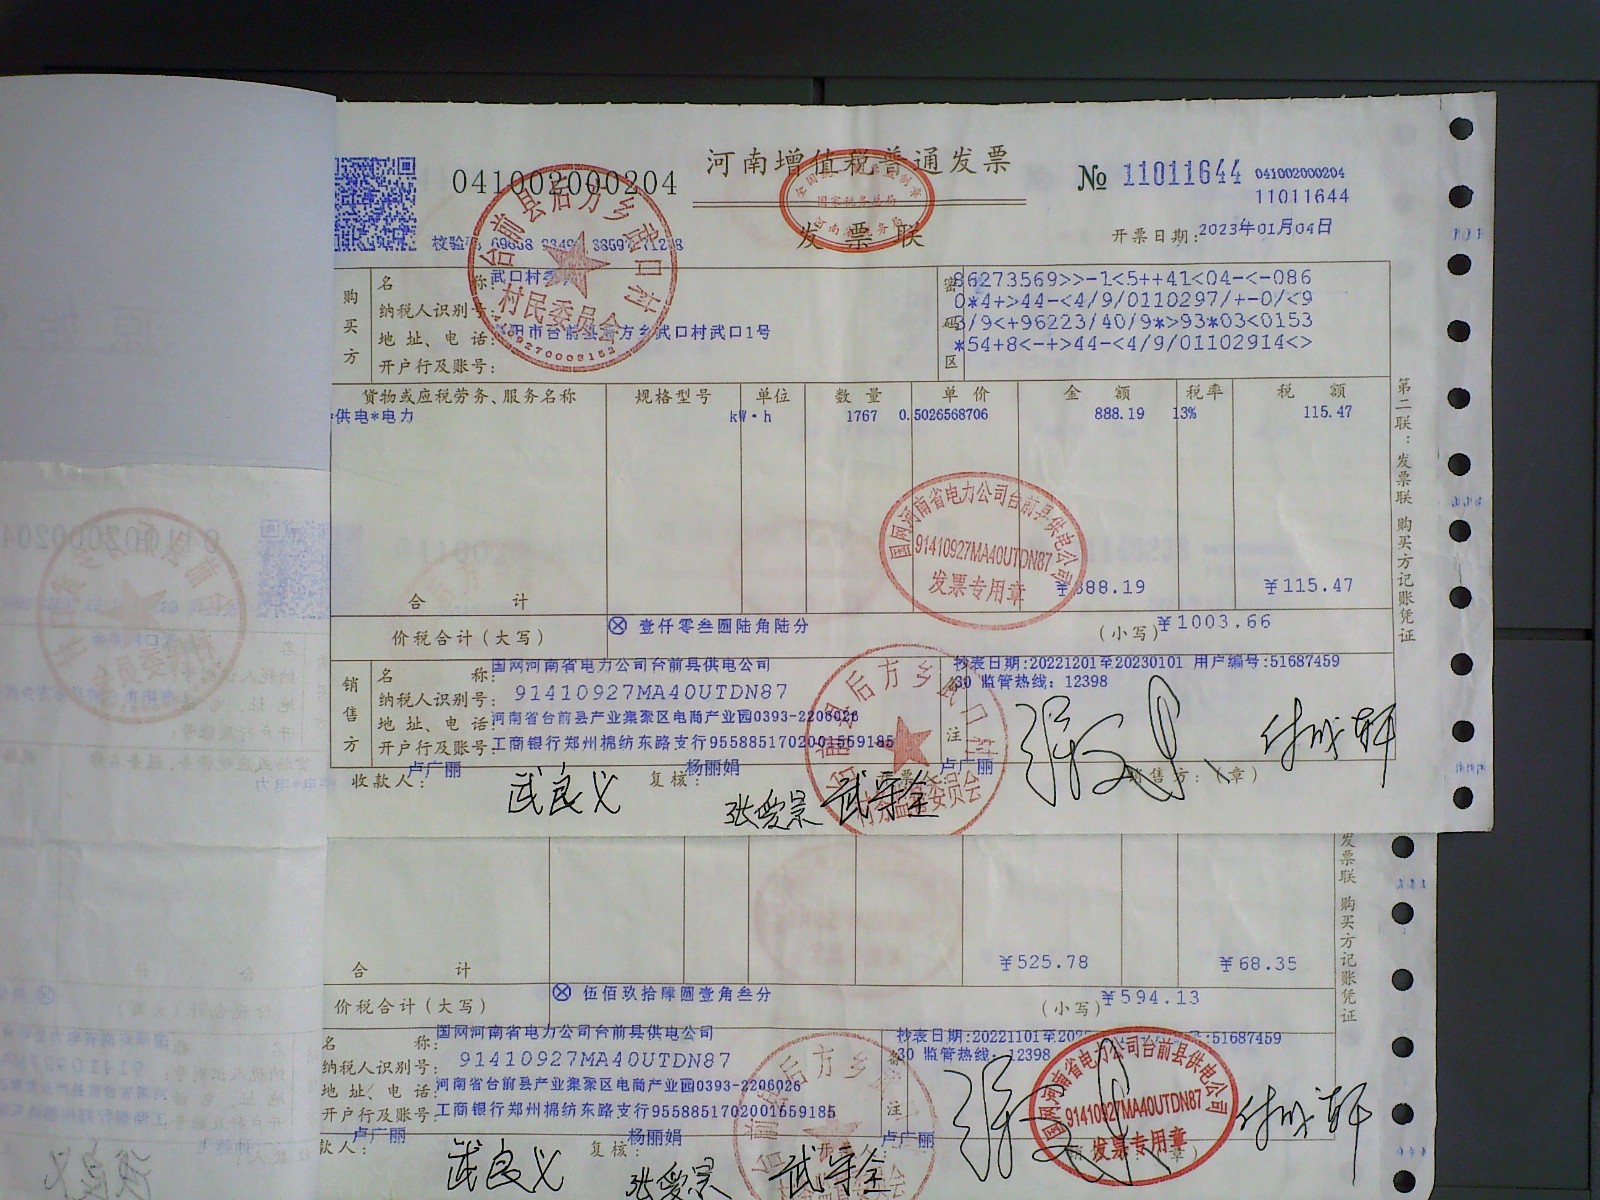 河南增值税普通发票
发票联
041002000204
№ 11011644
041002000204
11011644
开票日期: 2023年01月04日
校验码
购买方
名 称: 武口村
纳税人识别号:
地址、电话: 阳市台前县后方乡武口村武口1号
开户行及账号:
密码区
86273569>>-1<5++41<04-<-086
0*4+>44-<4/9/0110297/+-0/<9
3/9<+96223/40/9*>93*03<0153
*54+8<-+>44-<4/9/01102914<>
台前县后方乡武口村
村民委员会
货物或应税劳务、服务名称 规格型号 单位 数量 单价 金额 税率 税额
*供电*电力 kW·h 1767 0.5026568706 888.19 13% 115.47
国网河南省电力公司台前县供电公司
91410927MA40UTDN87
发票专用章
合计 ¥888.19 ¥115.47
价税合计(大写) ⊗ 壹仟零叁圆陆角陆分 (小写) ¥1003.66
销售方
名 称: 国网河南省电力公司台前县供电公司
纳税人识别号: 91410927MA40UTDN87
地址、电话: 河南省台前县产业集聚区电商产业园0393-2206026
开户行及账号: 工商银行郑州棉纺东路支行9558851702001559185
备注
抄表日期:20221201至20230101 用户编号:51687459
30 监管热线: 12398
收款人: 卢广丽 复核: 杨丽娟 开票人: 卢广丽 销售方:(章)
武良义 张爱景 武守全
第二联:发票联 购买方记账凭证
合计 ¥525.78 ¥68.35
价税合计(大写) ⊗ 伍佰玖拾肆圆壹角叁分 (小写) ¥594.13
名 称: 国网河南省电力公司台前县供电公司
纳税人识别号: 91410927MA40UTDN87
地址、电话: 河南省台前县产业集聚区电商产业园0393-2206026
开户行及账号: 工商银行郑州棉纺东路支行9558851702001559185
注
抄表日期:20221101至202 :51687459
30 监管热线: 12398
国网河南省电力公司台前县供电公司
91410927MA40UTDN87
发票专用章
款人: 卢广丽 复核: 杨丽娟 开票人: 卢广丽
武良义 张爱景 武守全
发票联 购买方记账凭证